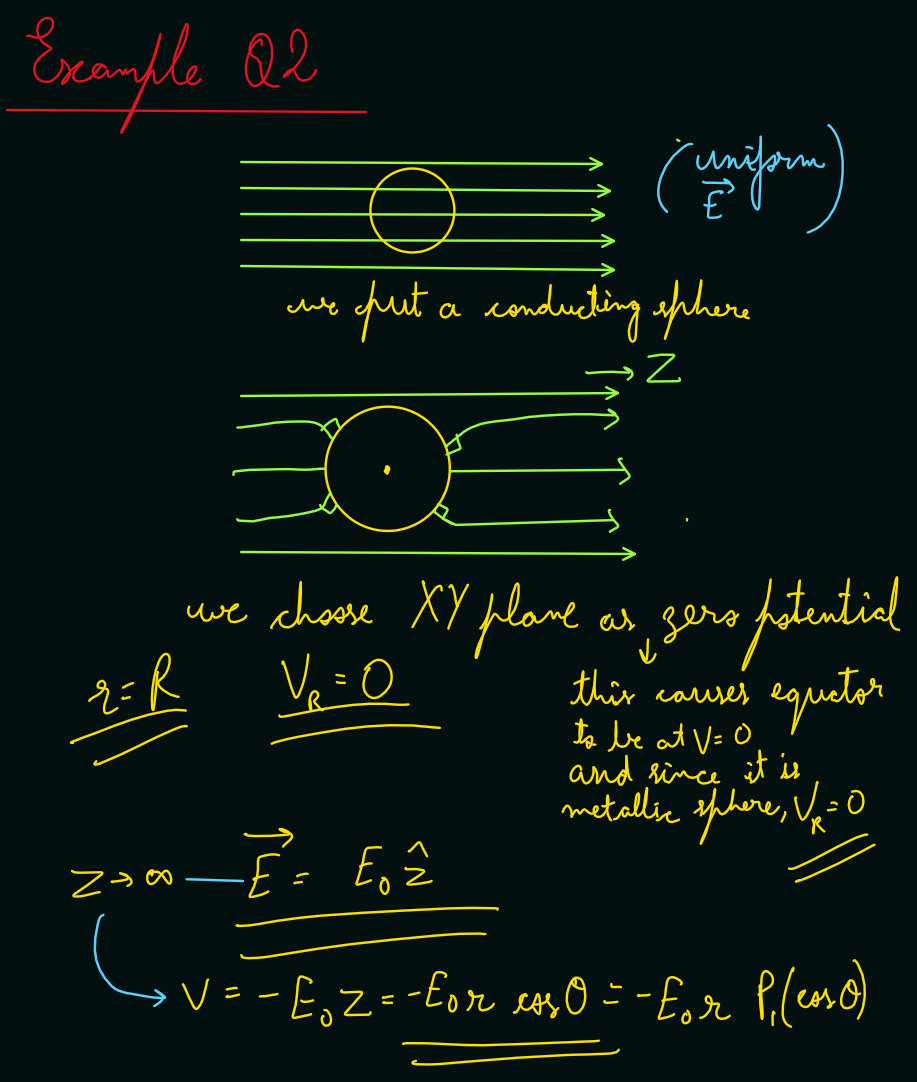 Example Q2
(uniform
E⃗)
we put a conducting sphere
→ Z
we choose XY plane as zero potential
↓
r=R V_R = 0
this causes equator
to be at V=0
and since it is
metallic sphere, V_R=0
Z→∞ — E⃗ = E₀ ẑ
V = -E₀Z = -E₀r cosθ = -E₀r P₁(cosθ)